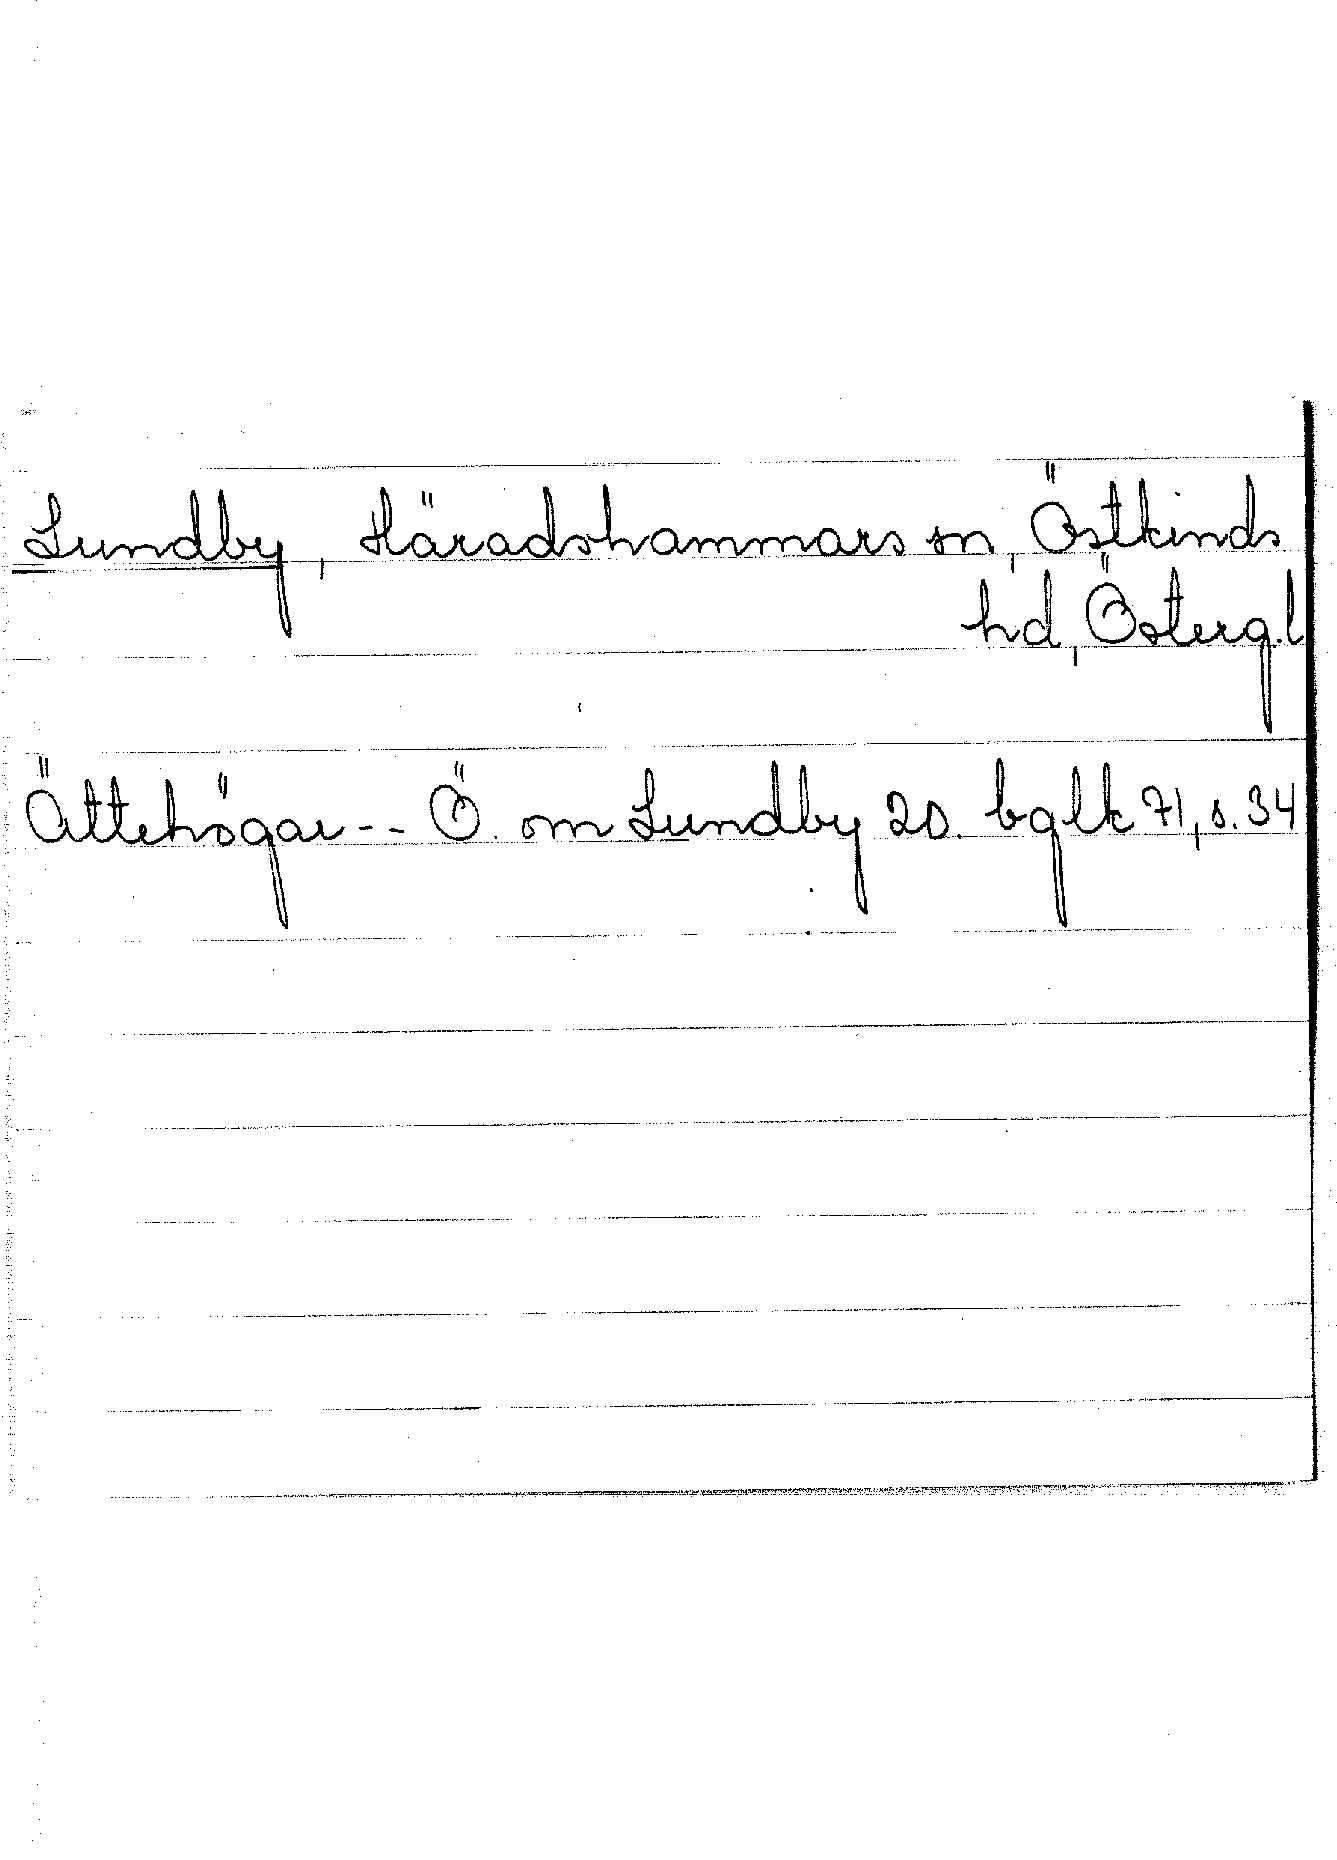 Lundby, Häradshammars sn, Östkinds
hd, Östergl
Ättehögar -- Ö. om Lundby 20. bglk 71, s. 34